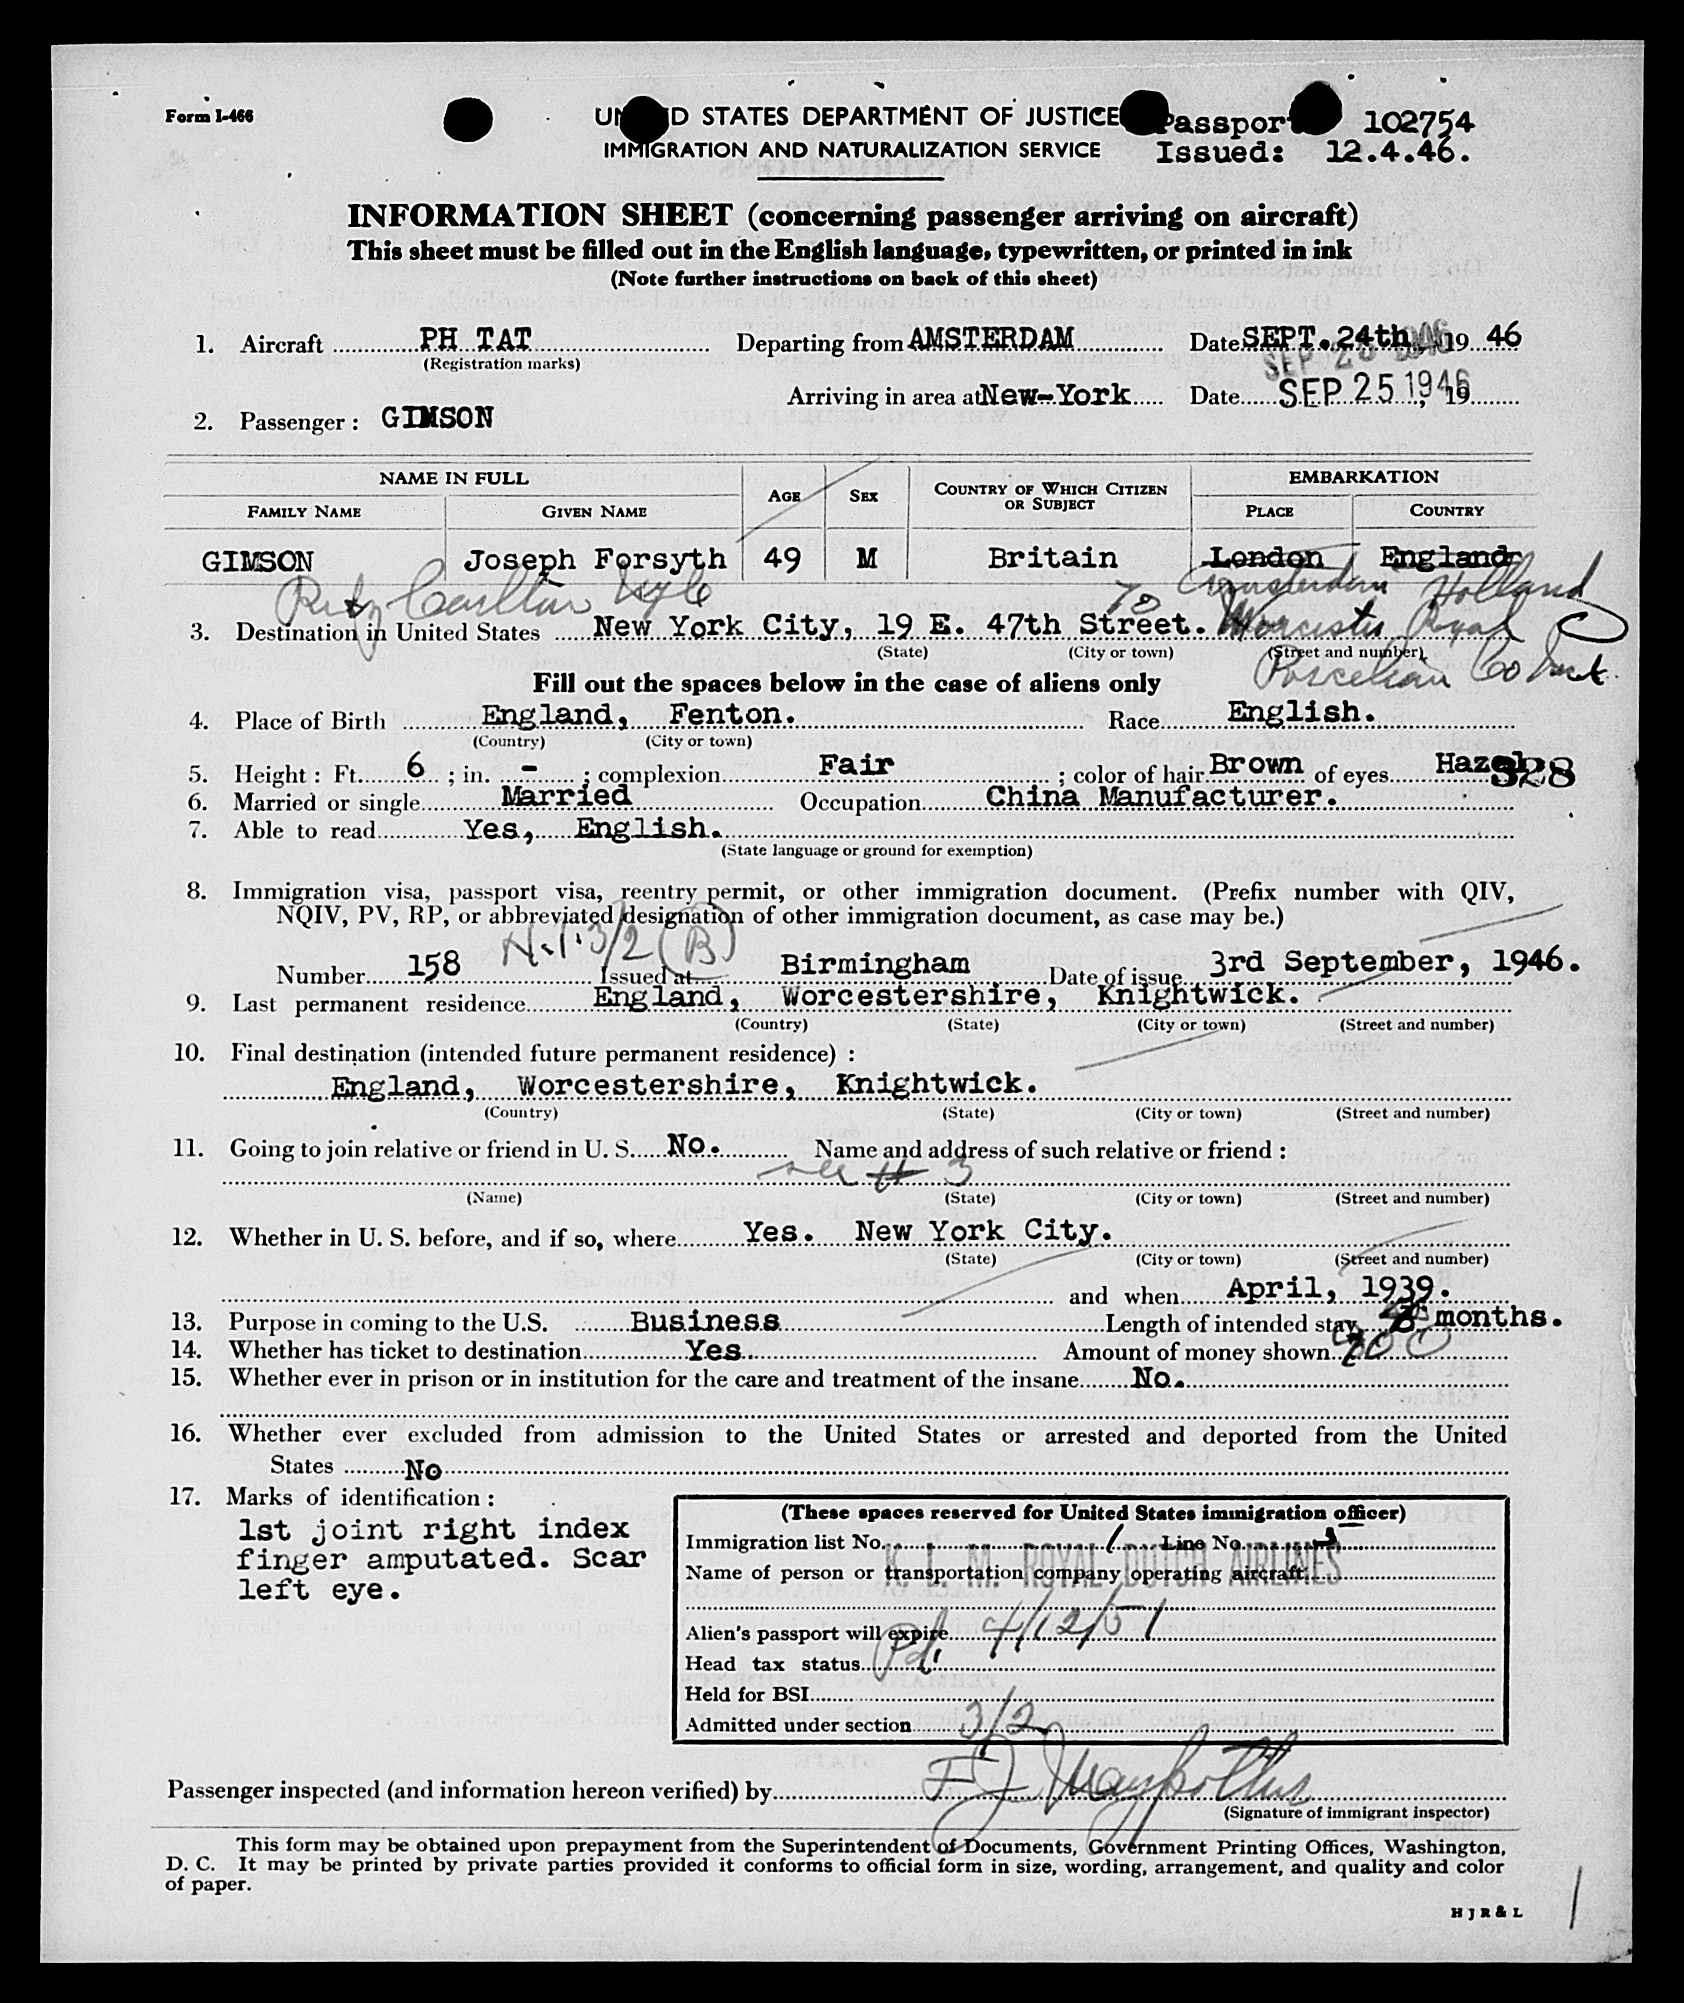 Form I-466
UNITED STATES DEPARTMENT OF JUSTICE
IMMIGRATION AND NATURALIZATION SERVICE
Passport 102754
Issued: 12.4.46.
INFORMATION SHEET (concerning passenger arriving on aircraft)
This sheet must be filled out in the English language, typewritten, or printed in ink
(Note further instructions on back of this sheet)
1. Aircraft PH TAT Departing from AMSTERDAM Date SEPT. 24th, 19 46
(Registration marks)
SEP 25 1946
Arriving in area at New-York Date SEP 25 1946, 19
2. Passenger: GIMSON
NAME IN FULL AGE SEX COUNTRY OF WHICH CITIZEN OR SUBJECT EMBARKATION
FAMILY NAME GIVEN NAME PLACE COUNTRY
GIMSON Joseph Forsyth 49 M Britain London England
Ritz Carlton Amsterdam Holland
3. Destination in United States New York City, 19 E. 47th Street. To Worcester Royal
(State) (City or town) (Street and number)
Porcelain Co
Fill out the spaces below in the case of aliens only
4. Place of Birth England, Fenton. Race English.
(Country) (City or town)
5. Height: Ft. 6 ; in. - ; complexion Fair ; color of hair Brown of eyes Hazel
328
6. Married or single Married Occupation China Manufacturer.
7. Able to read Yes, English.
(State language or ground for exemption)
8. Immigration visa, passport visa, reentry permit, or other immigration document. (Prefix number with QIV,
NQIV, PV, RP, or abbreviated designation of other immigration document, as case may be.)
3/2 (B)
Number 158 Issued at Birmingham Date of issue 3rd September, 1946.
9. Last permanent residence England, Worcestershire, Knightwick.
(Country) (State) (City or town) (Street and number)
10. Final destination (intended future permanent residence) :
England, Worcestershire, Knightwick.
(Country) (State) (City or town) (Street and number)
11. Going to join relative or friend in U. S. No. Name and address of such relative or friend :
see # 3
(Name) (State) (City or town) (Street and number)
12. Whether in U. S. before, and if so, where Yes. New York City.
(State) (City or town) (Street and number)
and when April, 1939.
13. Purpose in coming to the U.S. Business Length of intended stay months.
14. Whether has ticket to destination Yes Amount of money shown
15. Whether ever in prison or in institution for the care and treatment of the insane No.
16. Whether ever excluded from admission to the United States or arrested and deported from the United
States No
17. Marks of identification :
1st joint right index
finger amputated. Scar
left eye.
(These spaces reserved for United States immigration officer)
Immigration list No. 1 Line No.
K. L. M. ROYAL DUTCH AIRLINES
Name of person or transportation company operating aircraft
Alien's passport will expire 4/12/51
Head tax status Pd.
Held for BSI
Admitted under section 3/2
Passenger inspected (and information hereon verified) by
(Signature of immigrant inspector)
This form may be obtained upon prepayment from the Superintendent of Documents, Government Printing Offices, Washington,
D. C. It may be printed by private parties provided it conforms to official form in size, wording, arrangement, and quality and color
of paper.
H J R & L
1